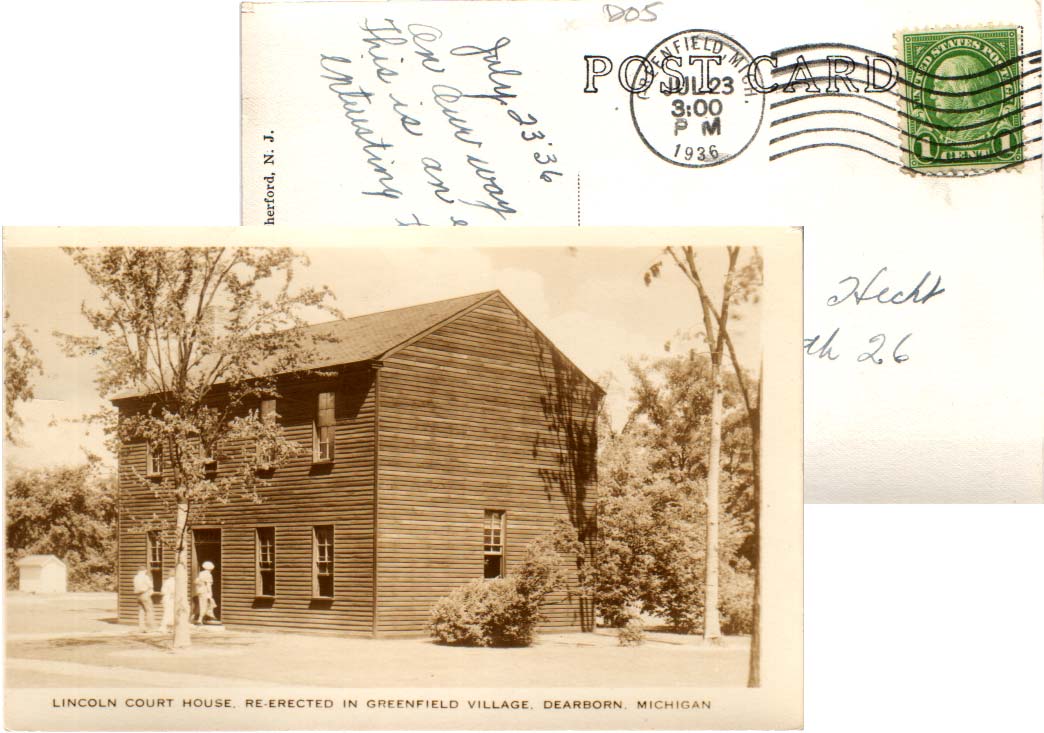 D05
POST CARD
GREENFIELD, MICH.
JUL 23
3:00
P M
1936
UNITED STATES POSTAGE
1 CENT 1
herford, N. J.
July 23 '36
On Our way
This is an
Hecht
26
LINCOLN COURT HOUSE, RE-ERECTED IN GREENFIELD VILLAGE, DEARBORN, MICHIGAN